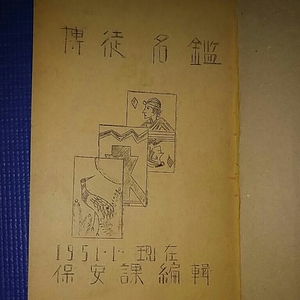 博徒名鑑
1951.1.現在
保安課編輯